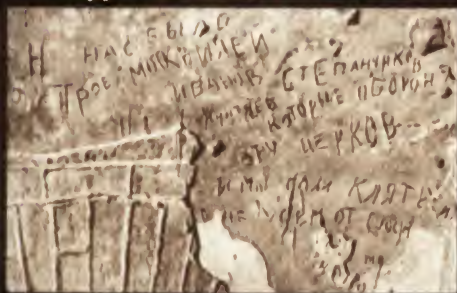 НАС БЫЛО
ТРОЕ МОСКВИЧЕЙ
ИВАНОВ СТЕПАНЧИКОВ
ЖУНТЯЕВ КОТОРЫЕ ОБОРОНЯ
ЭТУ ЦЕРКОВ
И МЫ ДАЛИ КЛЯТВУ
НЕ УЙДЕМ ОТСЮДА